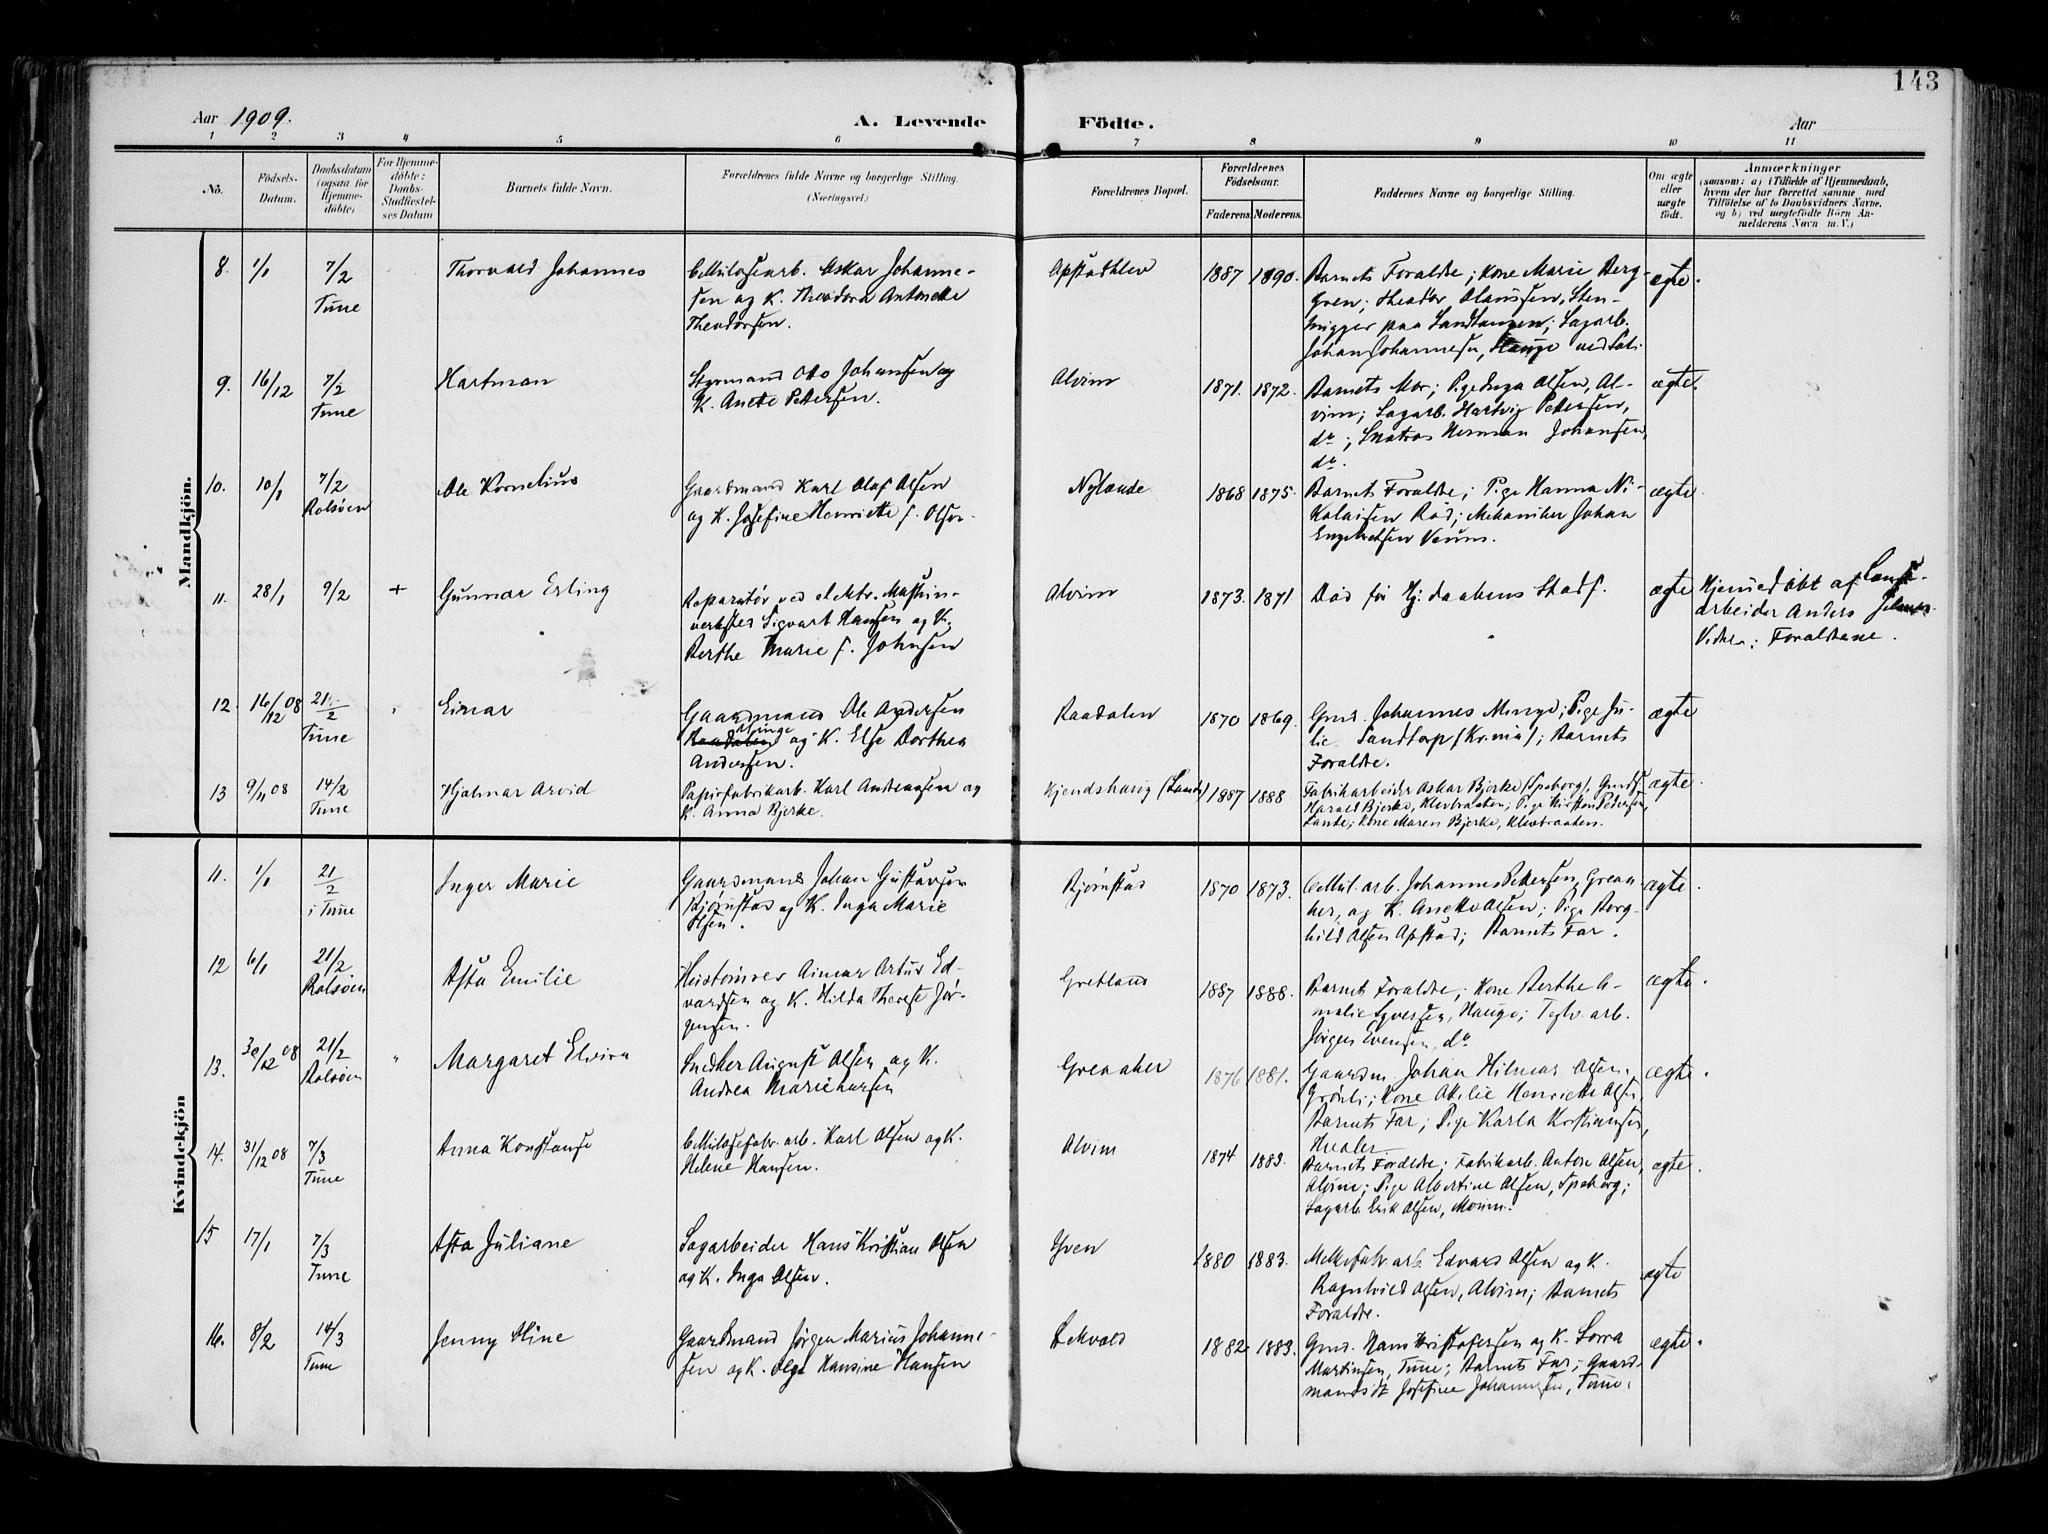 143
Aar 1909. A. Levende Födte. Aar
1 2 3 4 5 6 7 8 9 10 11
No. Födsels-Datum. Daabsdatum (ogsaa for Hjemmedöbte) For Hjemmedöbte: Daabs-Stadfæstelses Datum Barnets fulde Navn. Forældrenes fulde Navne og borgerlige Stilling. (Næringsvei.) Forældrenes Bopæl. Forældrenes Födselsaar. Faderens Moderens. Faddernes Navne og borgerlige Stilling. Om ægte eller uægte födt. Anmærkninger (saasom: a) i Tilfælde af Hjemmedaab, hvem der har forrettet samme med Tilföielse af to Daabsvidners Navne, og b) ved uægtefödte Börn Anmelderens Navn m. V.)
Mandkjön.
8. 1/1 7/2 Thorvald Johannes Cellulosearb. Oskar Johanne- Opstadhlev 1887 1890. Barnets Foraldre; Kone Marie Berg- ægte.
Tune sen og K. Theodora Antonette Gven; Theodor Olaussen, Sten-
Theodorsen. hugger paa Sandtangen; Sagarb.
Johan Johannesen, Hauge
9. 16/12 7/2 Hartman Styrmand Otto Johansen og Alvim 1871. 1872. Barnets Mor; Pige Inga Olsen, Al- ægte.
Tune K. Anette Petersen. vim; Sagarb. Hartvig Petersen,
do; Matros Herman Johansen,
do.
10. 10/1 7/2 Ole Kornelius Gaardmand Karl Olaf Olsen Nylænde 1868 1875. Barnets Foraldre; Pige Hanna Ni- ægte
Rolsöen og K. Josefine Henriette f. Olsen. kolaisen Röd; Mekaniker Johan
Engebretsen Veum.
11. 28/1 9/2 + Gunnar Erling Reparatör ved elektr. Maskin- Alvim 1873. 1871 Död för Hj. daabens Stadf. ægte Hjemmedöbt af
verksted Sigvart Hansen og K. arbeider Anders
Berthe Marie f. Johnsen Foraldrene.
12. 16/12 08 21/2 Einar Gaardmand Ole Andersen Raadalen 1870 1869. Gmd. Johannes Minge; Pige Ju- ægte
Tune Minge
Raadalen og K. Else Dorthea lie Sandtorp (Kr.nia); Barnets
Andersen. Foraldre.
13 9/11 08 14/2 Hjalmar Arvid Papirfabrikarb. Karl Andreassen og Kjendshaug (Lande) 1887 1888 Fabrikarbeider Oskar Bjerke (Speborg), ægte
Tune K. Anna Bjerke. Harald Bjerke, Klevbraaten; Pige Kirsten Pedersen,
Lande; Kone Maren Bjerke, Klevbraaten.
Kvindekjön
11. 1/1 21/2 Inger Marie Gaardmand Johan Gustavsen Björnstad 1870 1873. Cellul. arb. Johannes Pettersen, Greaa- ægte.
i Tune Björnstad og K. Inga Marie ker, og K. Anette Olsen; Pige Borg-
Olsen. hild Olsen Opstad; Barnets Far.
12 6/1 21/2 Asta Emilie Hustömrer Aimar Artur Ed- Gretland 1887 1888. Barnets Foraldre; Kone Berthe A- ægte.
Rolsöen vardsen og K. Hilda Therese Jör- malie Syversen, Hauge; Teglv. arb.
gensen. Jörgen Evensen, do
13. 30/12 08 21/2 Margaret Elvira Snedker August Olsen og K. Greaaker 1876 1881. Gaardm. Johan Hilmar Olsen, ægte.
Rolsöen Andrea Marie Larsen Grönli; Kone Otilie Henriette Olsen,
Barnets Far; Pige Karla Kristiansen,
14. 31/12 08 7/3 Anna Konstanse Cellulosefabr. arb. Karl Olsen og K. Alvim 1874 1883. Barnets Foraldre; Fabrikarb. Anton Olsen, ægte.
Tune Helene Hansen. Alvim; Pige Albertine Olsen, Speborg;
Sagarb. Erik Olsen, Moum.
15 17/1 7/3 Asta Juliane Sagarbeider Hans Kristian Olsen Yven 1880 1883. Melkefabr. arb. Edvard Olsen og K. ægte
Tune og K. Inga Olsen. Ragnhild Olsen, Alvim; Barnets
Foraldre.
16. 8/2 14/3 Jenny Stine Gaardmand Jörgen Marius Johanne- 1882 1883. Gmd. Hans Kristofersen og K. Lorra ægte.
Tune sen og K. Olga Hansine Hansen Martinsen, Tune; Barnets Far; Gaard-
mandsdt Josefine Johannesen, Tune.